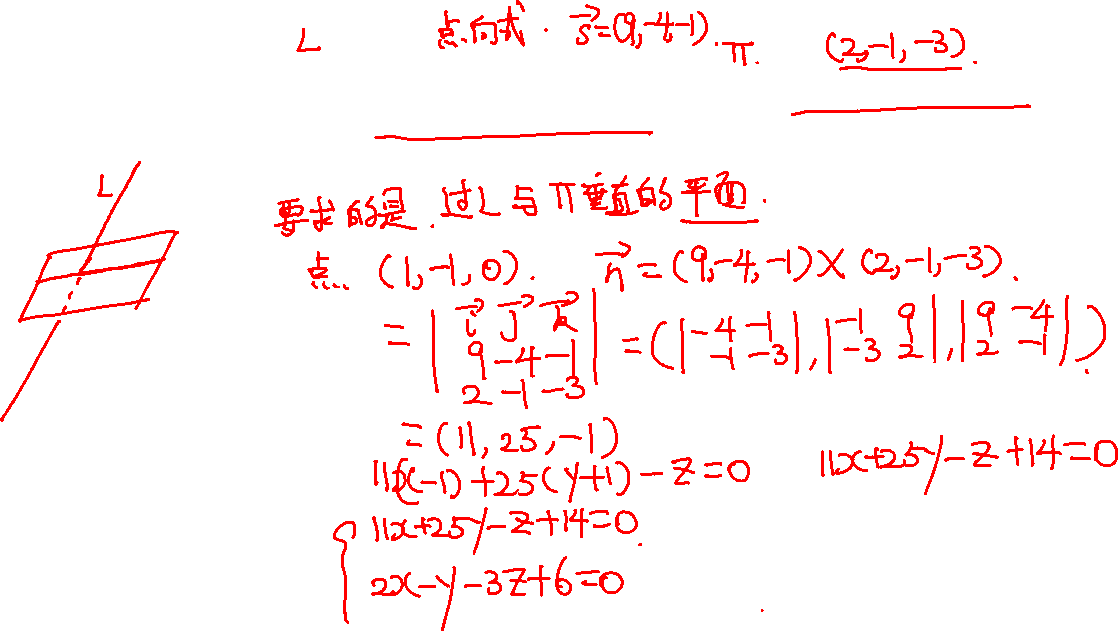 L 点向式. s⃗=(9,-4,-1). π. (2,-1,-3).
L
要求的是.过L与π垂直的平面.
点 (1,-1,0). n⃗=(9,-4,-1)×(2,-1,-3).
=|i⃗ j⃗ k⃗; 9 -4 -1; 2 -1 -3|=(|-4 -1; -1 -3|,|-1 9; -3 2|,|9 -4; 2 -1|).
=(11,25,-1)
11(x-1)+25(y+1)-z=0 11x+25y-z+14=0
{11x+25y-z+14=0.
2x-y-3z+6=0